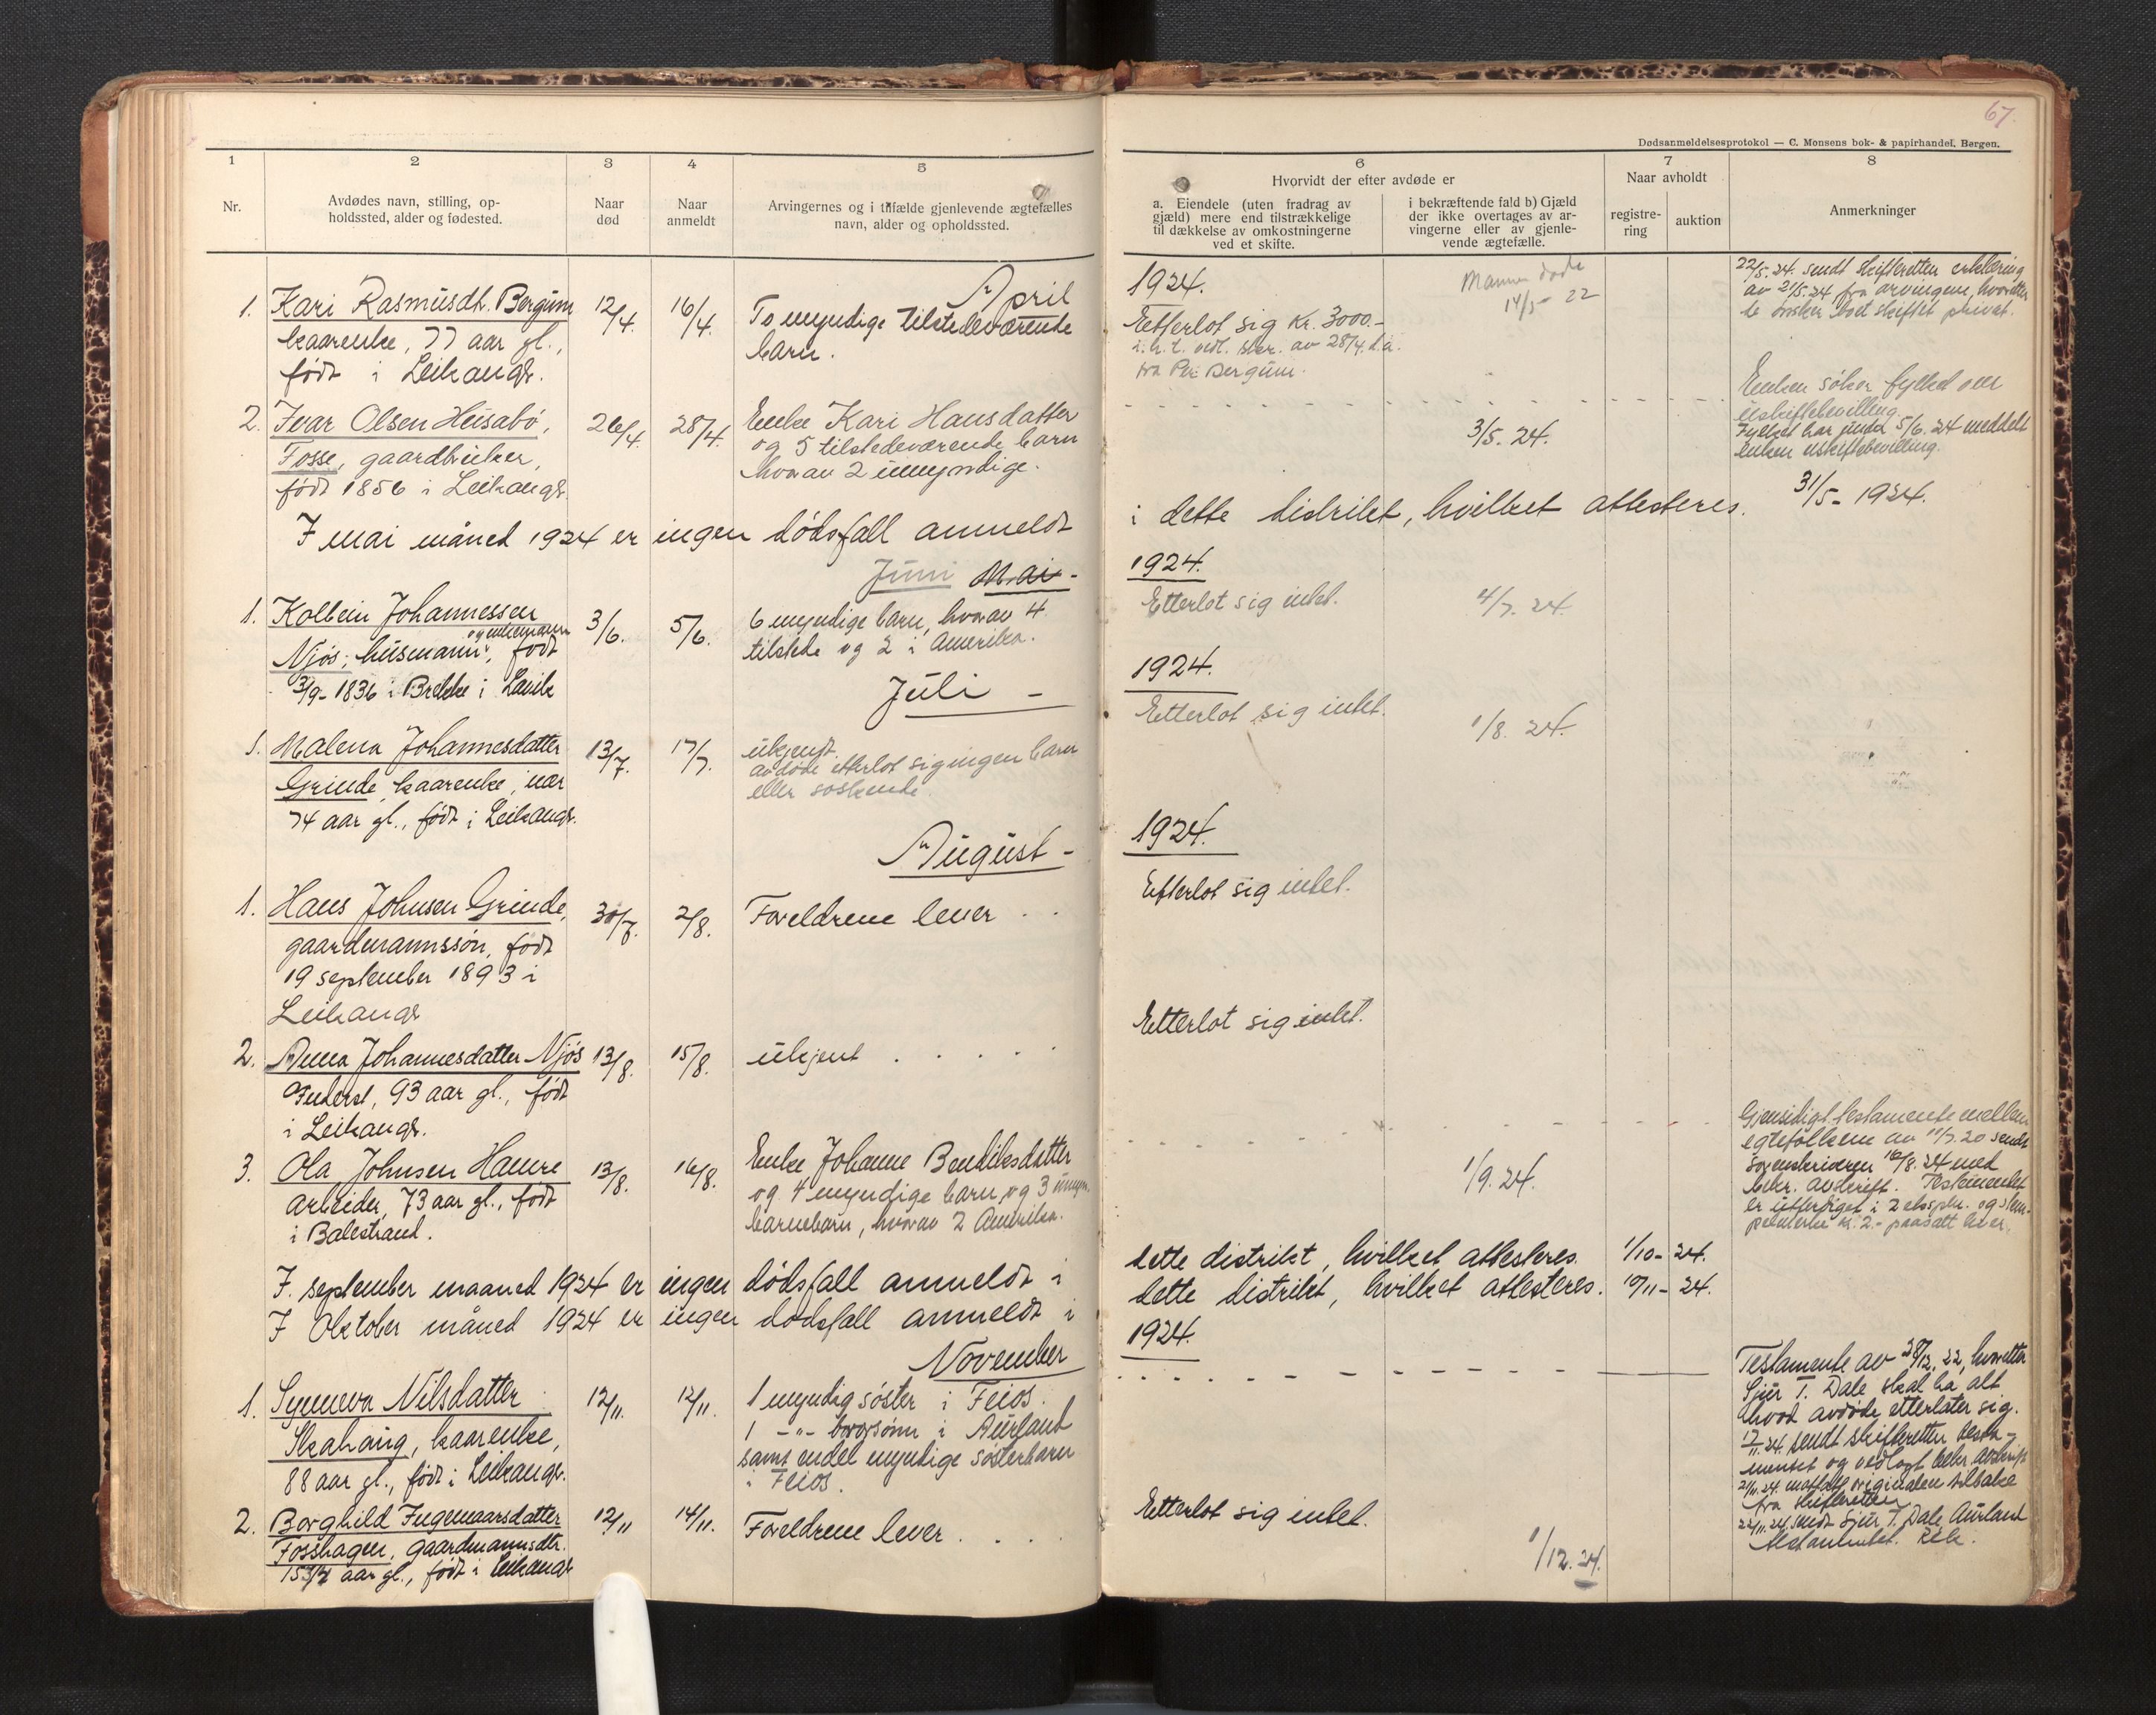 67.
Dødsanmeldelsesprotokol — C. Monsens bok- & papirhandel, Bergen.
1
2
3
4
5
6
7
8
Nr.
Avdødes navn, stilling, op-
holdssted, alder og fødested.
Naar
død
Naar
anmeldt
Arvingernes og i tilfælde gjenlevende ægtefælles
navn, alder og opholdssted.
Hvorvidt der efter avdøde er
a. Eiendele (uten fradrag av
gjæld) mere end tilstrækkelige
til dækkelse av omkostningerne
ved et skifte.
i bekræftende fald b) Gjæld
der ikke overtages av ar-
vingerne eller av gjenle-
vende ægtefælle.
Naar avholdt
registre-
ring
auktion
Anmerkninger
April
1924.
1. Kari Rasmusdt. Bergum
kaarenke, 77 aar gl.,
født i Leikangr.
12/4.
16/4.
To myndige tilstedeværende
barn.
Etterlot sig Kr. 3000.-
i.h.t. vedl. skr. av 28/4. d.a.
fra Per Bergum.
Mannen døde
14/5- 22
22/5.24. sendt skifteretten erklæring
av 21/5.24 fra arvingene, hvoretter
de ønsker boet skiftet privat.
2. Ivar Olsen Husabø,
Fosse, gaardbruker,
født 1856 i Leikangr.
26/4.
28/4.
Enke Kari Hansdatter
og 5 tilstedeværende barn
hvorav 2 umyndige.
3/5. 24.
Enken søker fylket om
uskiftebevilling.
Fylket har under 5/6. 24 meddelt
enken uskiftebevilling.
I mai måned 1924 er ingen dødsfall anmeldt
i dette distrikt, hvilket attesteres. 31/5- 1924.
Juni Mai -
1924.
1. Kolbein Johannessen
Njøs, husmann,
og enkemann
født
3/9- 1836 i Brekke i Lavik
3/6.
5/6.
6 myndige barn, hvorav 4
tilstede og 2 i Amerika.
Etterlot sig intet.
4/7. 24.
Juli -
1924.
1. Malena Johannesdatter
Grinde, kaarenke, nær
74 aar gl., født i Leikangr.
13/7.
17/7.
ukjendt.
avdøde etterlot sig ingen barn
eller søskende
Etterlot sig intet.
1/8. 24.
August -
1924.
1. Hans Johnsen Grinde,
gaardmannssøn, født
19 september 1893 i
Leikangr
30/7.
2/8.
Foreldrene lever . .
Efterlot sig intet.
2. Anna Johannesdatter Njøs
Inderst, 93 aar gl., født
i Leikangr.
13/8.
15/8.
ukjent . . . . .
Etterlot sig intet.
3. Ola Johnsen Hamre
arbeider, 73 aar gl., født
i Balestrand.
13/8.
16/8.
Enke Johanne Bendiksdatter
og 4 myndige barn, og 3 umyn.
barnebarn, hvorav 2 Amerika.
1/9. 24.
Gjensidigt testamente mellem
egtefolkene av 11/7.20 sendt
sorenskriveren 16/8. 24 med
bekr. avskrift. Testamentet
er utferdiget i 2 eksplr. og stem-
pelmerke kr. 2.- paasatt hver.
I september maaned 1924 er ingen dødsfall anmeldt i
dette distrikt, hvilket attesteres. 1/10- 24.
I Oktober måned 1924 er ingen dødsfall anmeldt i
dette distrikt, hvilket attesteres. 10/11- 24.
November
1924.
1. Synneva Nilsdatter
Skahaug, kaarenke,
88 aar gl., født i Leikangr.
12/11.
12/11.
1 myndig søster i Feios.
1 -"- brorsønn i Aurland
samt endel myndige søsterbarn
i Feios.
Testamente av 28/12. 22, hvoretter
Sjur T. Dale skal ha alt
hvad avdøde etterlater sig.
17/11.24 sendt skifteretten testa-
mentet og vedlagt bekr. avskrift
21/11.24. mottatt originalen tilbake
fra skifteretten
22/11.24. sendt Sjur T. Dale, Aurland
testamentet. Rek.
2. Borghild Ingemaarsdatter
Fosshagen, gaardmannsdtr.
15 3/4 aar gl., født i Leikangr
12/11
14/11.
Foreldrene lever . . . .
Etterlot sig intet.
1/12. 24.